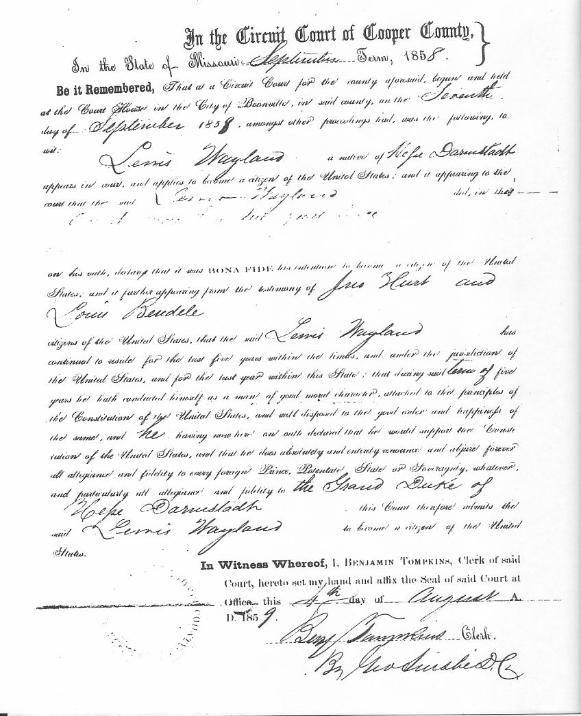 In the Circuit Court of Cooper County,
In the State of Missouri September Term, 1858.
Be it Remembered, That at a Circuit Court for the county aforesaid, begun and held
at the Court House in the City of Boonville, in said county, on the Seventh
day of September 1858, amongst other proceedings had, was the following, to
wit:
Lewis Wayland a native of Hesse Darmstadt
appears in court, and applies to become a citizen of the United States; and it appearing to the
court that the said Lewis Wayland did, in the
on his oath, declare that it was BONA FIDE, his intention to become a citizen of the United
States, and it further appearing from the testimony of Jno Hurt and
Louis Bendele
citizens of the United States, that the said Lewis Wayland has
continued to reside for the last five years within the limits, and under the jurisdiction of
the United States, and for the last year within this State; that during said term of five
years he hath conducted himself as a man of good moral character, attached to the principles of
the Constitution of the United States, and well disposed to the good order and happiness of
the same, and he having now here on oath declared that he would support the Consti-
tution of the United States, and that he does absolutely and entirely renounce and abjure forever
all allegiance and fidelity to every foreign Prince, Potentate, State or Sovereignty, whatever,
and particularly all allegiance and fidelity to the Grand Duke of
Hesse Darmstadt this Court therefore admits the
said Lewis Wayland to become a citizen of the United
States.
In Witness Whereof, I, BENJAMIN TOMPKINS, Clerk of said
Court, hereto set my hand and affix the Seal of said Court at
Office, this 4th day of August A.
D. 1859.
Benj Tompkins Clerk.
By Geo D.C.